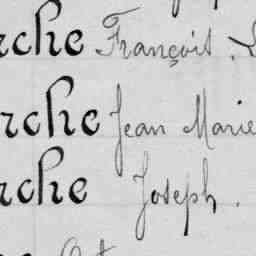 rche François.
rche Jean Marie
rche Joseph.